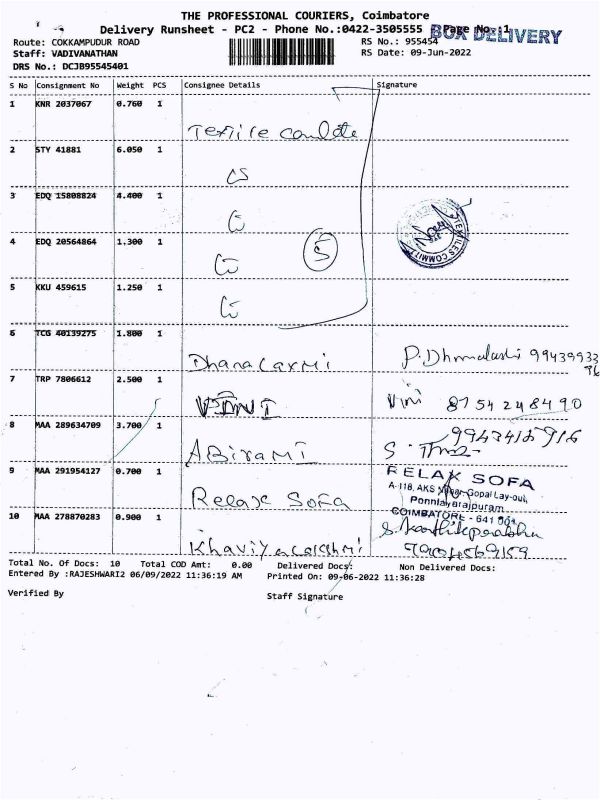 THE PROFESSIONAL COURIERS, Coimbatore
Delivery Runsheet - PC2 - Phone No.:0422-3505555 Page No.:1
BOX DELIVERY
Route: COKKAMPUDUR ROAD RS No.: 955454
Staff: VADIVANATHAN RS Date: 09-Jun-2022
DRS No.: DCJB95545401
S No Consignment No Weight PCS Consignee Details Signature
1 KNR 2037067 0.760 1
Textile
2 STY 41881 6.050 1
3 EDQ 15808824 4.400 1
4 EDQ 20564864 1.300 1
5
TEXTILES COMMITT
5 KKU 459615 1.250 1
6 TCG 40139275 1.800 1
Dhanalaxmi P. 99439933
96
7 TRP 7806612 2.500 1
VINI Vini 8754248490
8 MAA 289634709 3.700 1
ABIRAMI S.
9 MAA 291954127 0.700 1
Relax Sofa
RELAX SOFA
A-118, AKS Gopal Lay-out,
Ponnaiyarajpuram
COIMBATORE - 641 001
10 MAA 278870283 0.900 1
Khaviyalakshmi S. Karthikprabhu
Total No. Of Docs: 10 Total COD Amt: 0.00 Delivered Docs: Non Delivered Docs:
Entered By :RAJESHWARI2 06/09/2022 11:36:19 AM Printed On: 09-06-2022 11:36:28
Verified By Staff Signature